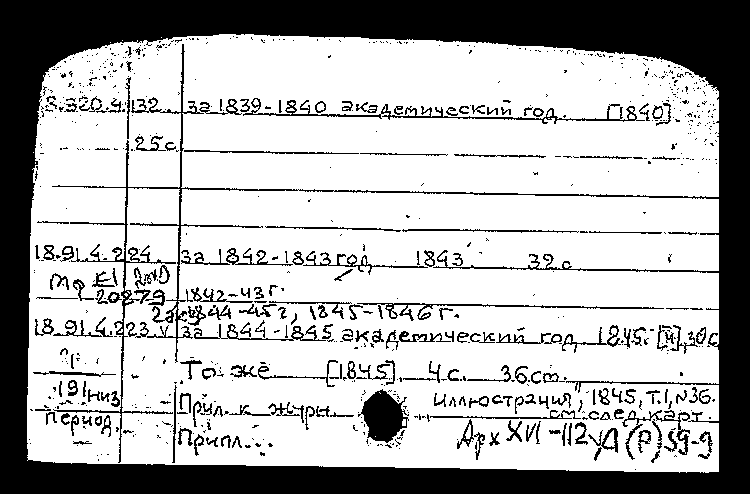 18.320.4.132. за 1839-1840 академический год. [1840].
25с
18.91.4.224. за 1842-1843 год 1843. 32с
Мф EI
20279 1842-43 г.
2 экз 1844-45 г, 1845-1846 г.
18.91.4.223.V за 1844-1845 академический год 1845. 30с
То же [1845]. 4с. 36 cm.
191 низ Прил. к журн. Иллюстрация", 1845, Т.1, N36.
период. см. след. карт.
Припл... Арх XVI-112 Д(Р) 59-9